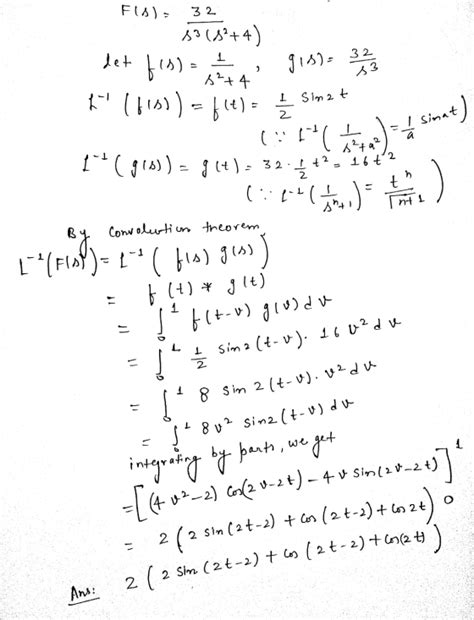 F(s) = 32 / s3 (s²+4)
let f(s) = 1 / s²+4 , g(s) = 32 / s3
L⁻¹ (f(s)) = f(t) = 1/2 sin2t
(∵ L⁻¹ (1 / s²+a²) = 1/a sinat)
L⁻¹ (g(s)) = g(t) = 32 · 1/2 t² = 16t²
(∵ L⁻¹ (1 / sⁿ⁺¹) = tⁿ / Γn+1)
By convolution theorem,
L⁻¹ (F(s)) = L⁻¹ ( f(s) g(s) )
= f(t) * g(t)
= ∫₀¹ f(t-v) g(v) dv
= ∫₀¹ 1/2 sin2(t-v). 16 v² dv
= ∫₀¹ 8 sin 2(t-v). v² dv
= ∫₀¹ 8v² sin2(t-v) dv
integrating by parts, we get
= [(4v²-2) cos(2v-2t) - 4v sin(2v-2t)]₀¹
= 2 (2 sin(2t-2) + cos(2t-2) + cos2t)
Ans: 2 (2 sin(2t-2) + cos(2t-2) + cos(2t))